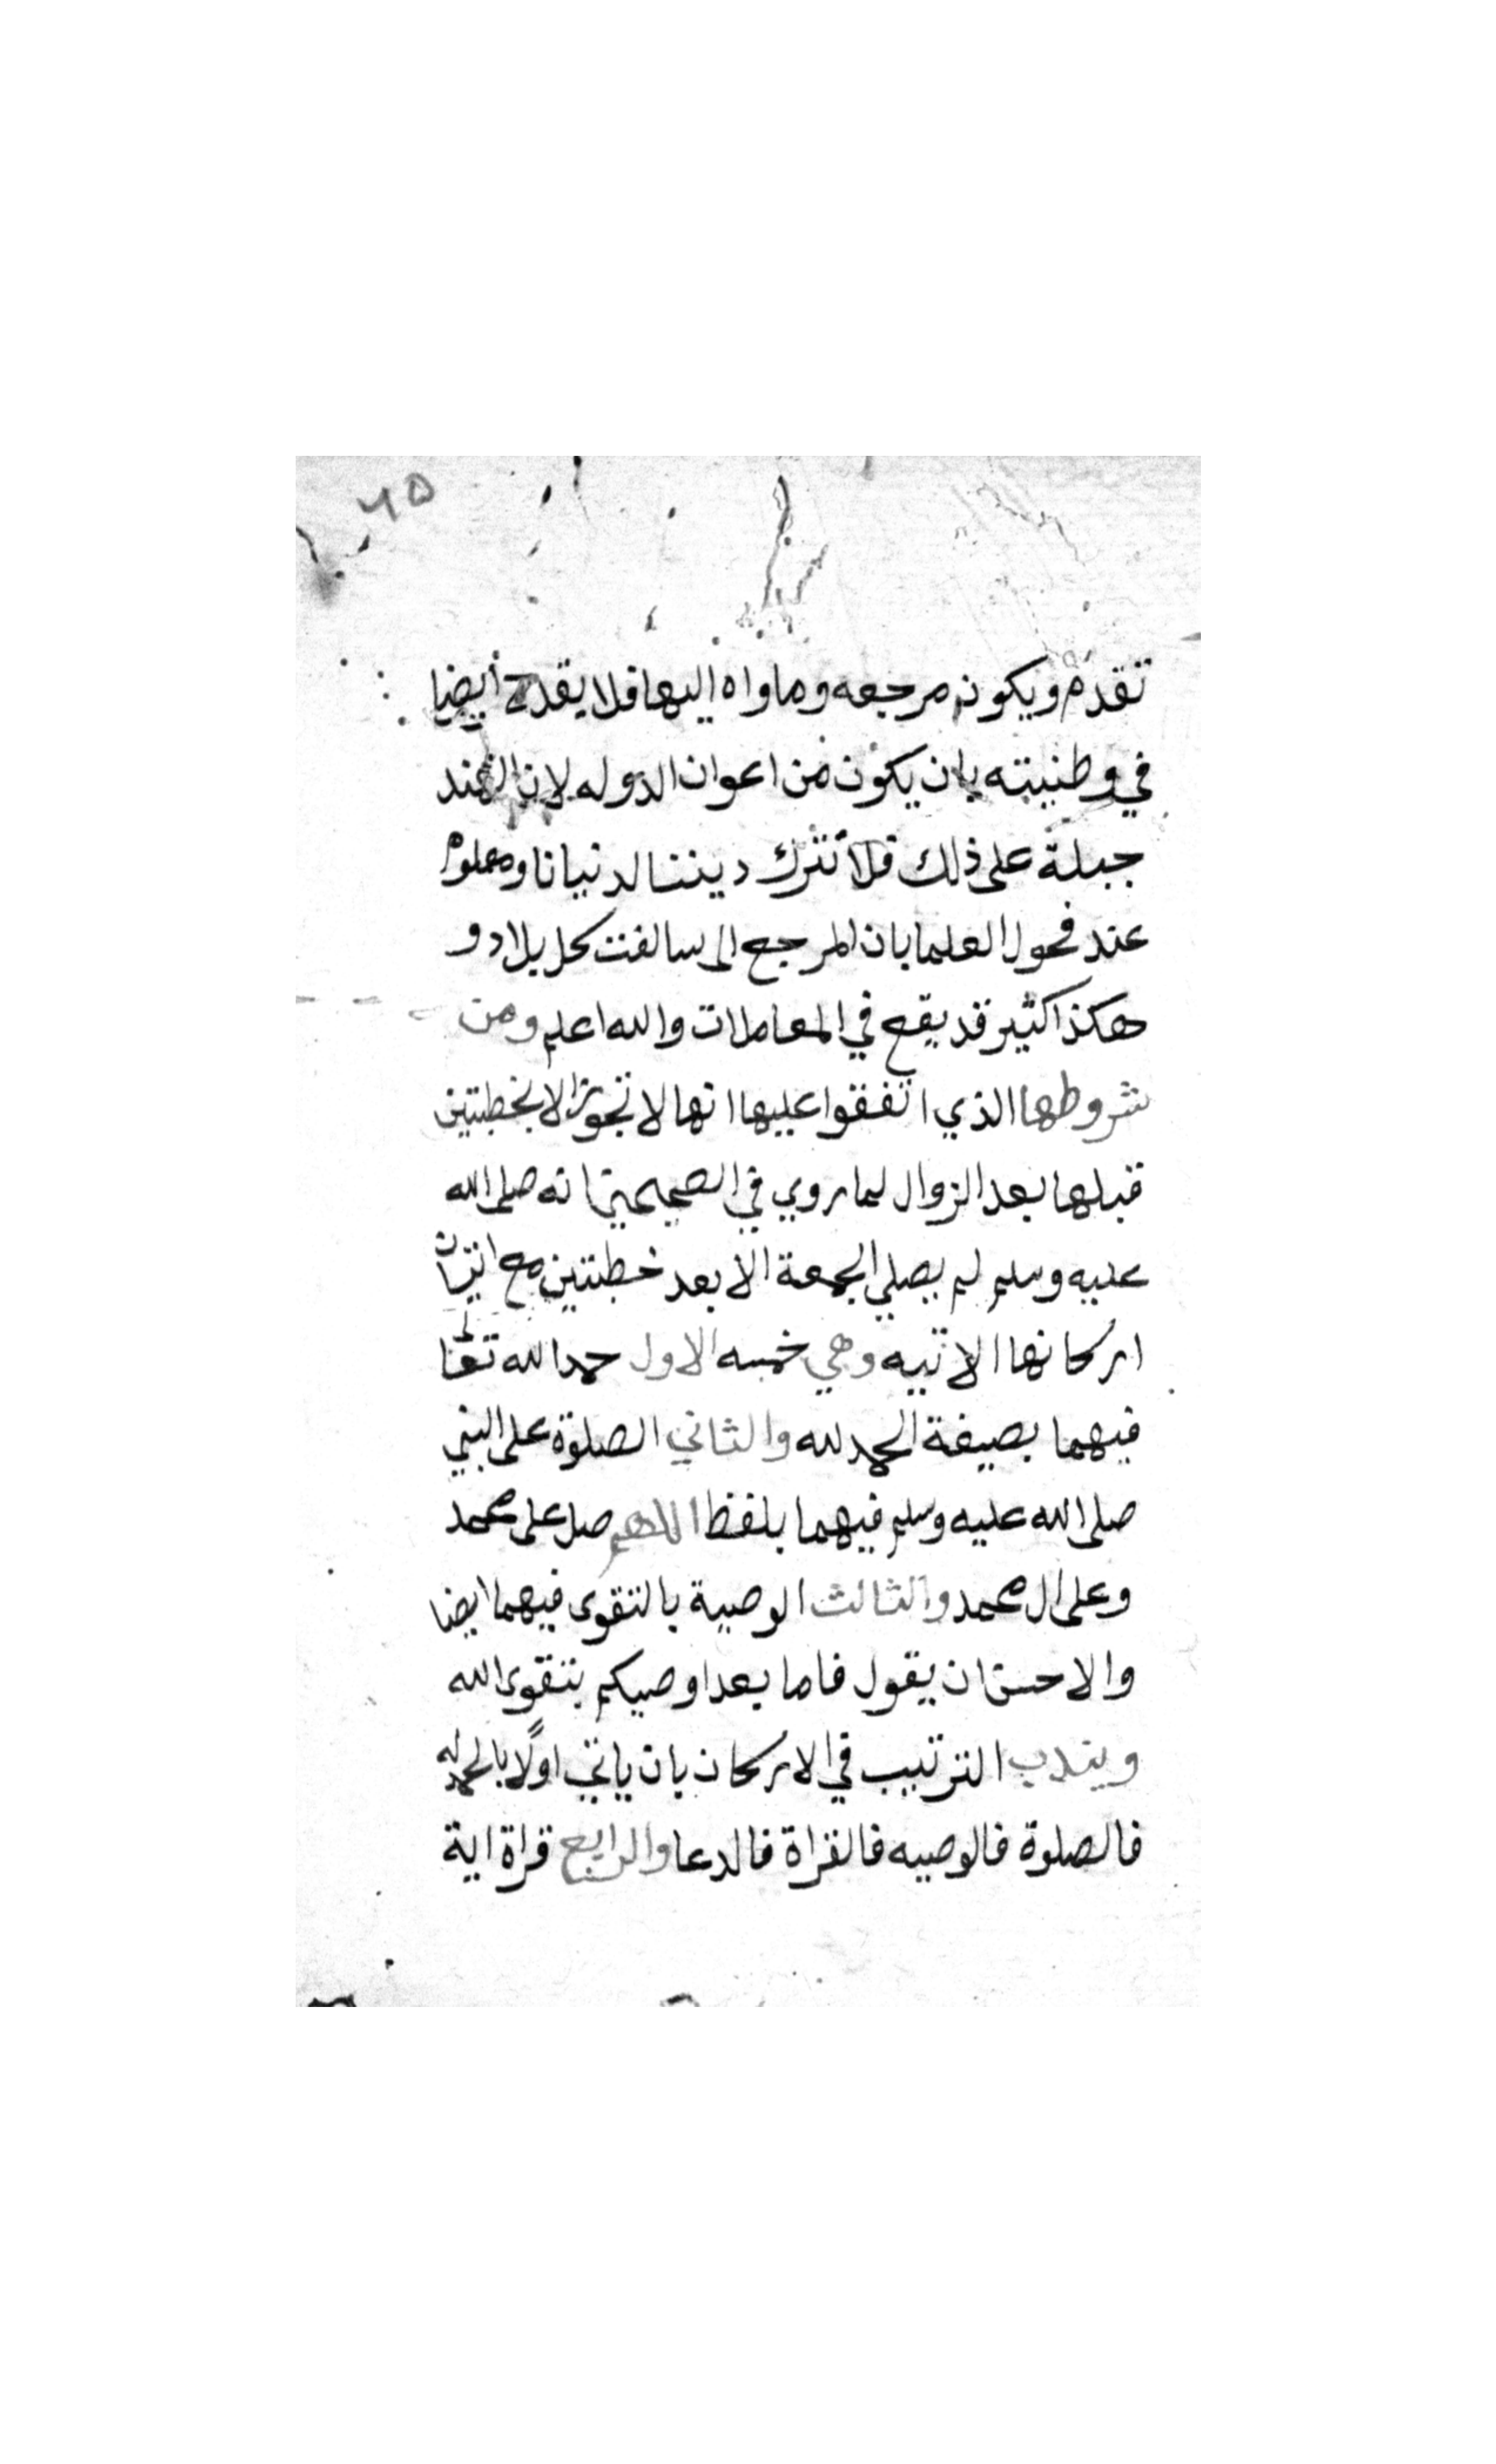 ٦٥
تقدم ويكون مرجعه وماواه اليها فلا يقدح أيضا
في وطنيته بان يكون من اعوان الدوله لان الهند
جبلة على ذلك فلا تترك ديننا لدنيانا ومعلوم
عند فحول العلما بان المرجع الى سالفت كل بلاد و
هكذا كثير قد يقع في المعاملات والله اعلم ومن
شروطها الذي اتفقوا عليها انها لا تجوز الا بخطبتين
قبلها بعد الزوال لما روي في الصحيحين انه صلى الله
عليه وسلم لم يصلي الجمعة الا بعد خطبتين مع اتيان
اركانها الاتيه وهي خمسه الاول حمد الله تعالى
فيهما بصيغة الحمد لله والثاني الصلوة على النبي
صلى الله عليه وسلم فيهما بلفظ اللاهم صل على محمد
وعلى ال محمد والثالث الوصية بالتقوى فيهما ايضا
والاحسن ان يقول فاما بعد اوصيكم بتقوى الله
ويندب الترتيب في الاركان بان ياتي اولًا بالحمد لله
فالصلوة فالوصيه فالقراة فالدعا والرابع قراة اية